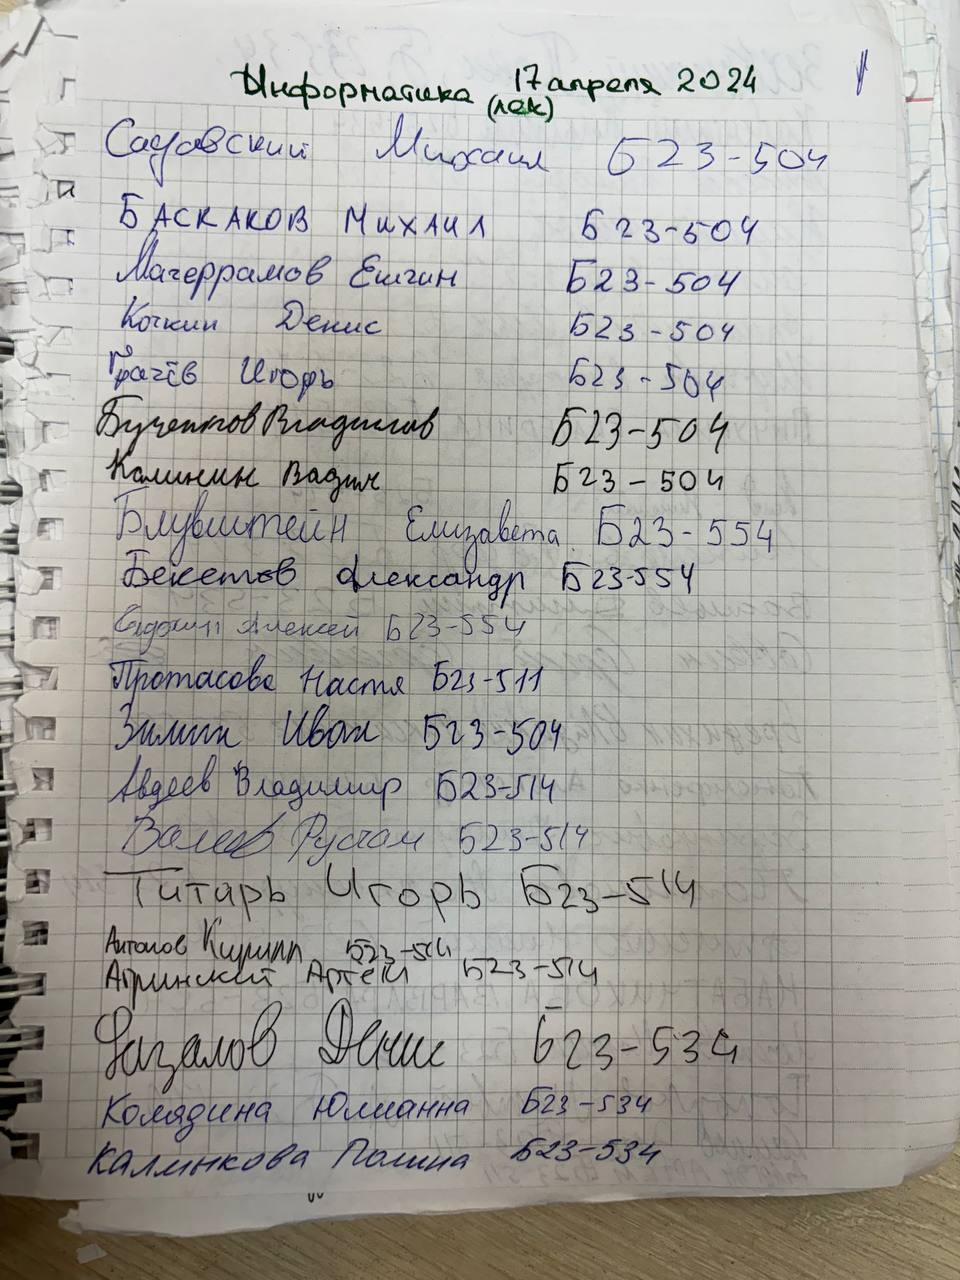 Информатика 17 апреля 2024
(лек)
Садовский Михаил Б23-504
БАСКАКОВ МИХАИЛ Б23-504
Магеррамов Ельгин Б23-504
Кочкин Денис Б23-504
Грачёв Игорь Б23-504
Владислав Б23-504
Калинин Вадим Б23-504
Блувштейн Елизавета Б23-554
Бекетов Александр Б23-554
Алексей Б23-554
Протасова Настя Б23-511
Зимин Иван Б23-504
Авдеев Владимир Б23-514
Валеев Рустам Б23-514
Титарь Игорь Б23-514
Кирилл Б23-514
Агринский Артём Б23-514
Денис Б23-534
Колядина Юлианна Б23-534
Калинкова Полина Б23-534